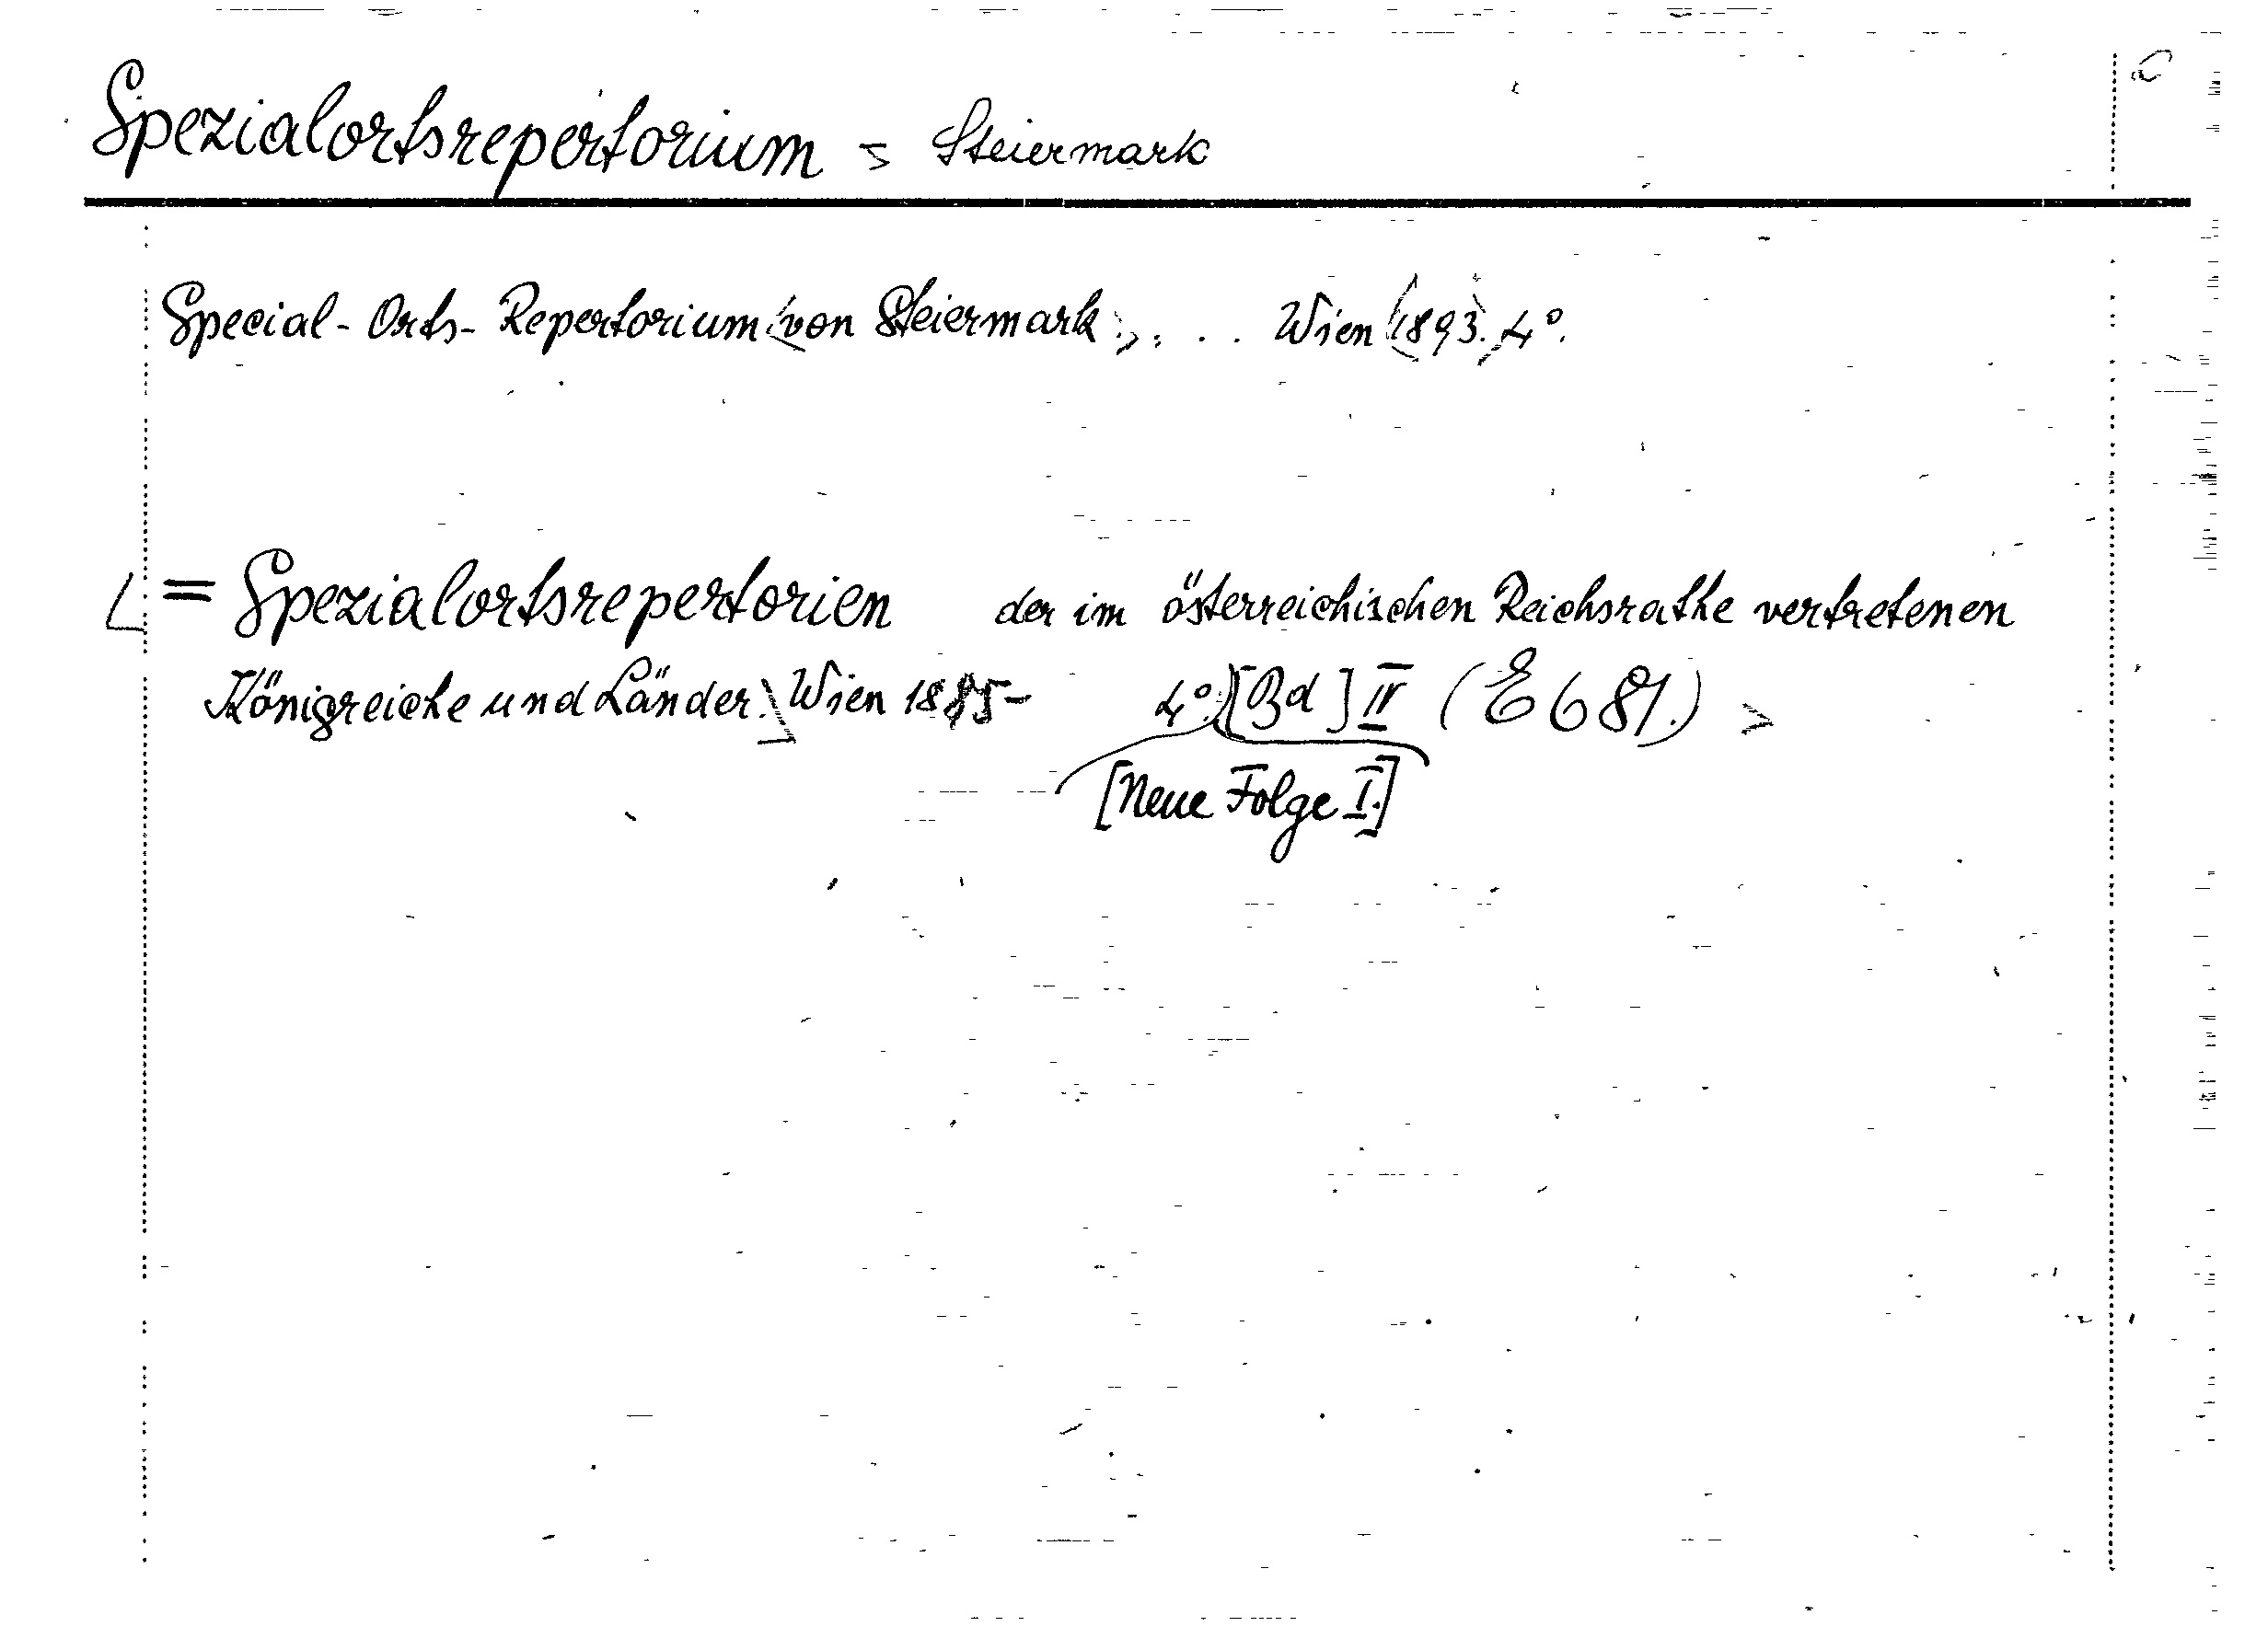 Spezialortsrepertorium = Steiermark
Special-Orts-Repertorium von Steiermark, ... Wien 1893. 4°.
= Spezialortsrepertorien der im österreichischen Reichsrathe vertretenen
Königreiche und Länder. Wien 1885- 4°. [Bd] IV (E 681.)
[Neue Folge I.]